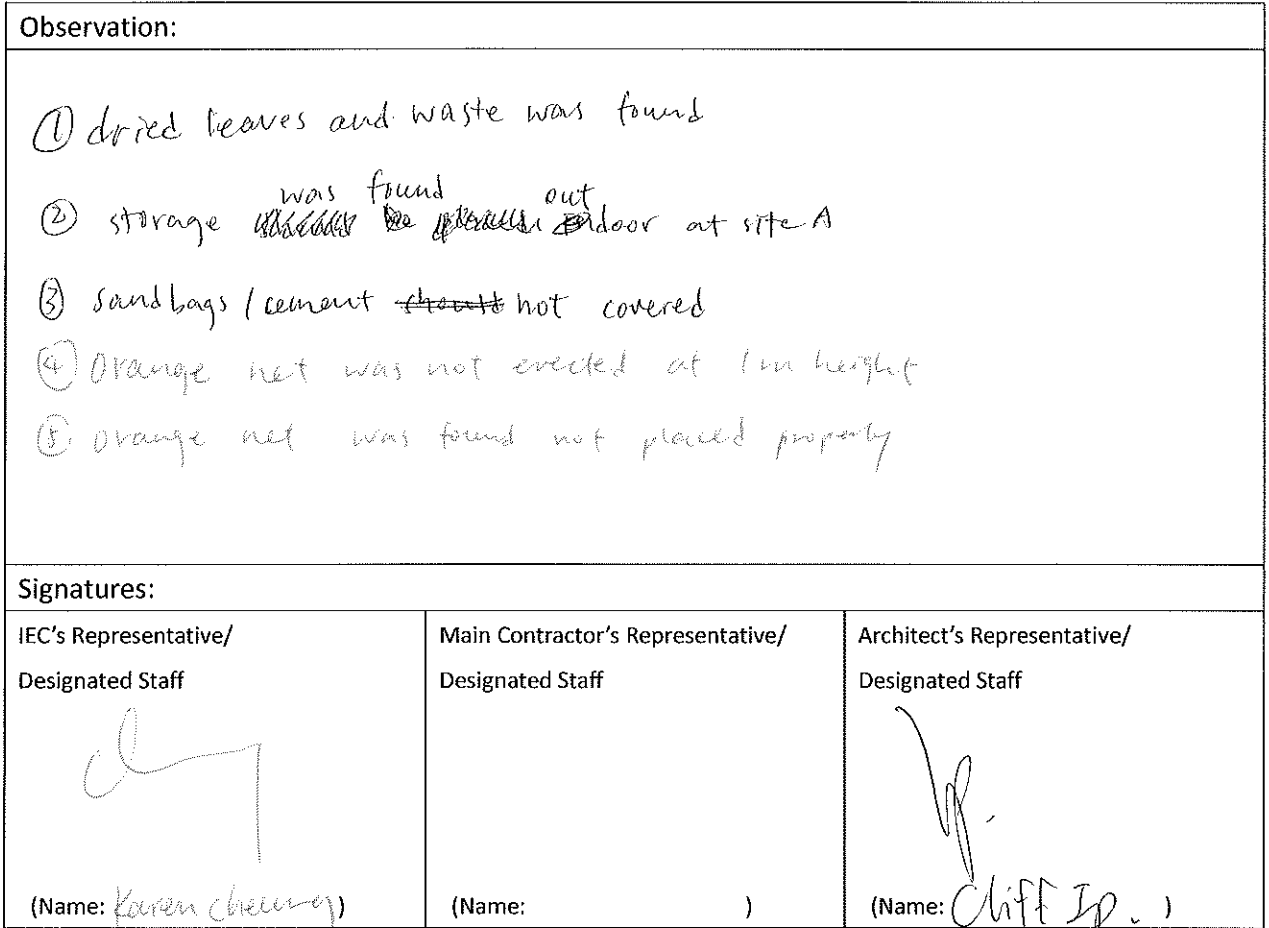 Observation:
① dried leaves and waste was found
was found out
② storage door at site A
③ sandbags / cement not covered
④ Orange net was not erected at 1m height
⑤ orange net was found not placed properly
Signatures:
IEC's Representative/
Designated Staff
(Name: Karen Cheung)
Main Contractor's Representative/
Designated Staff
(Name: )
Architect's Representative/
Designated Staff
(Name: Cliff Ip. )